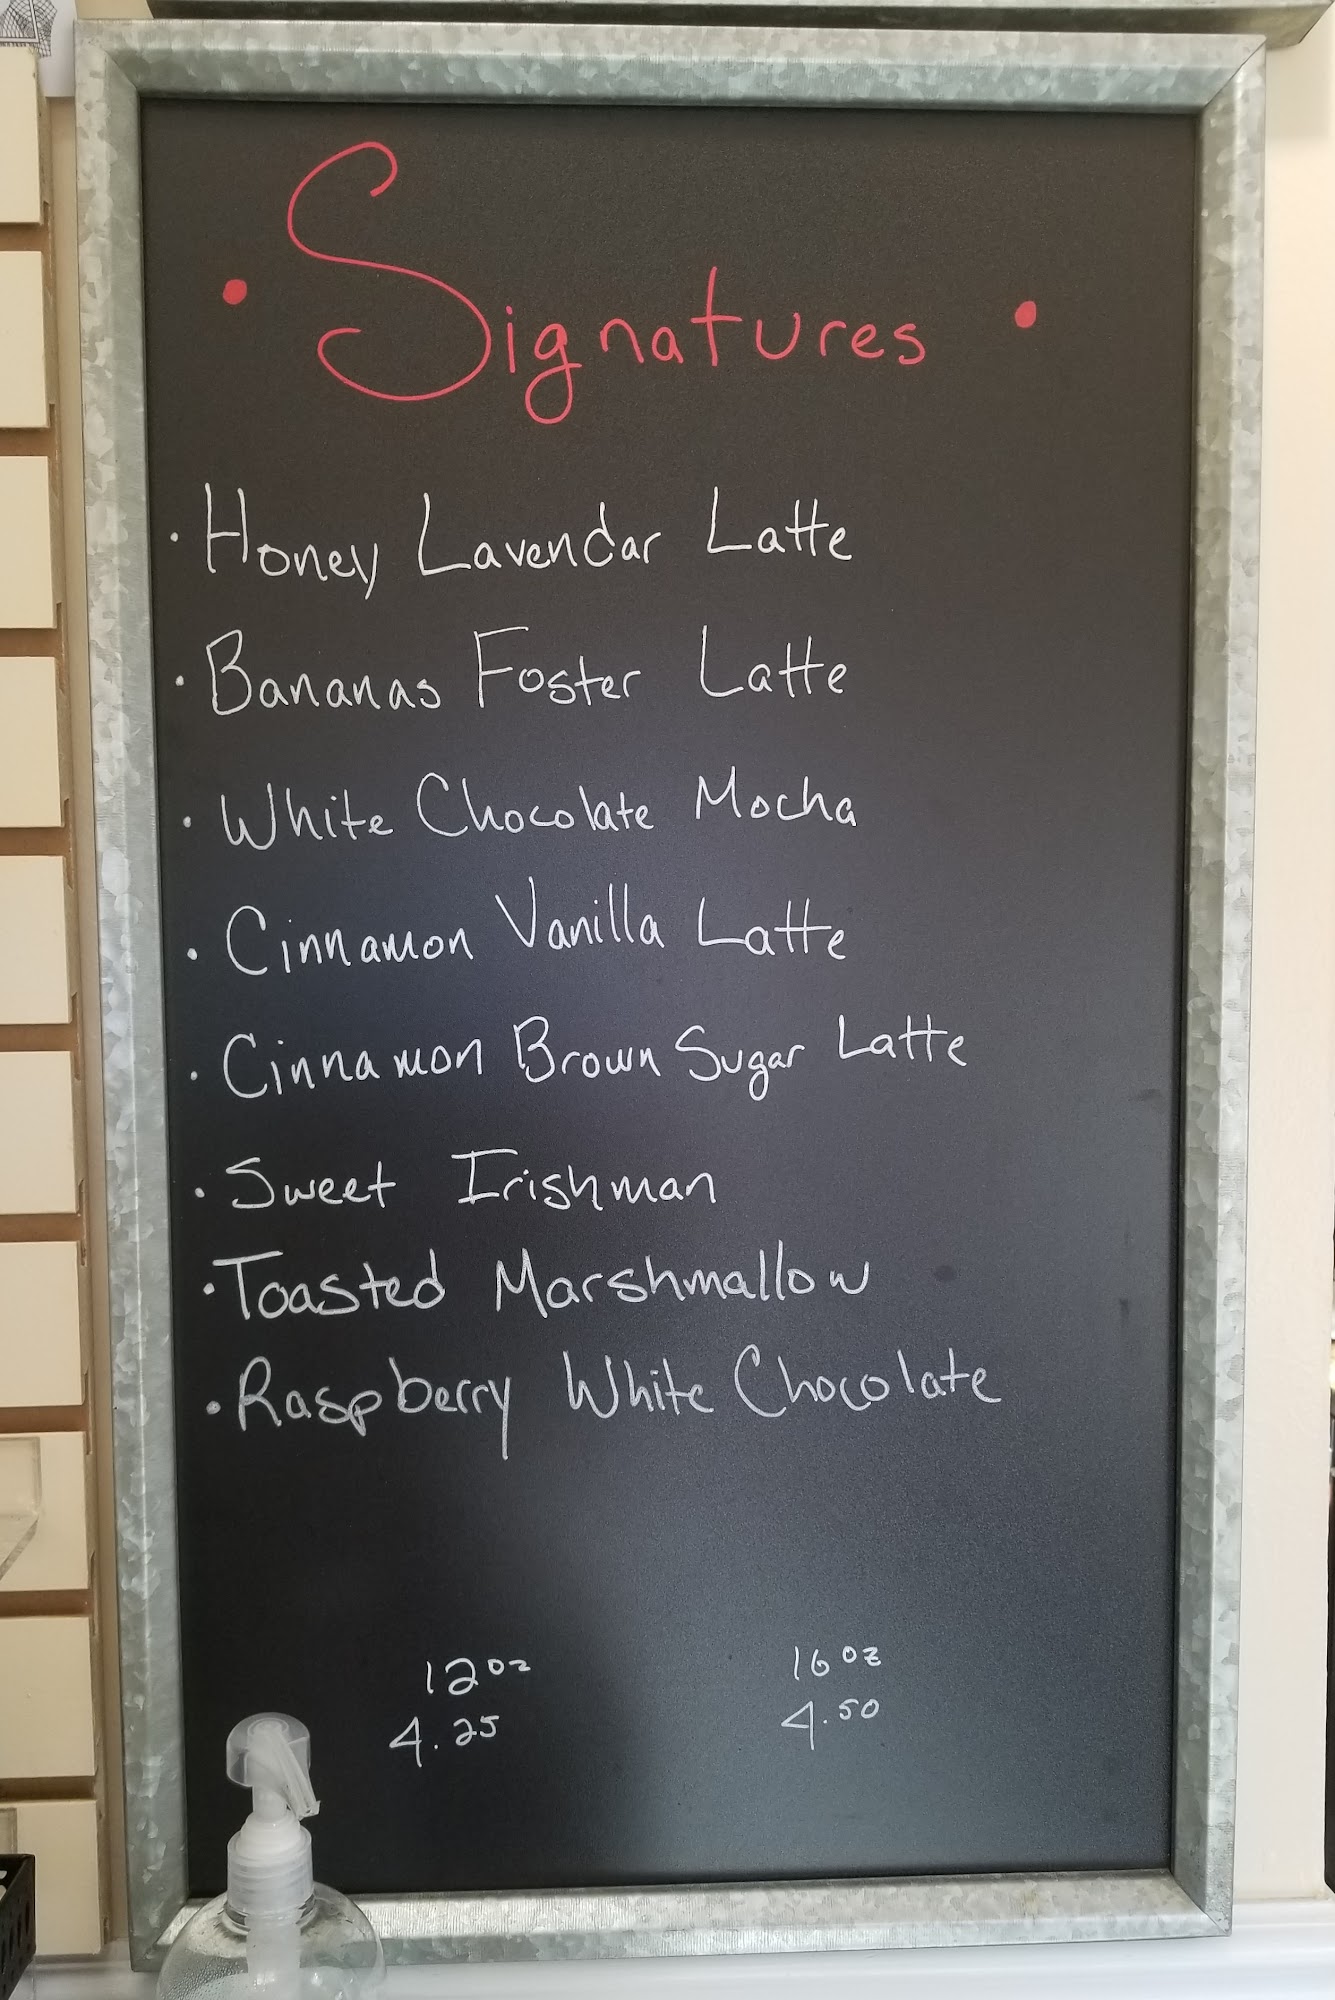 • Signatures •
• Honey Lavendar Latte
• Bananas Foster Latte
• White Chocolate Mocha
• Cinnamon Vanilla Latte
• Cinnamon Brown Sugar Latte
• Sweet Irishman
• Toasted Marshmallow
• Raspberry White Chocolate
12oz 16oz
4.25 4.50